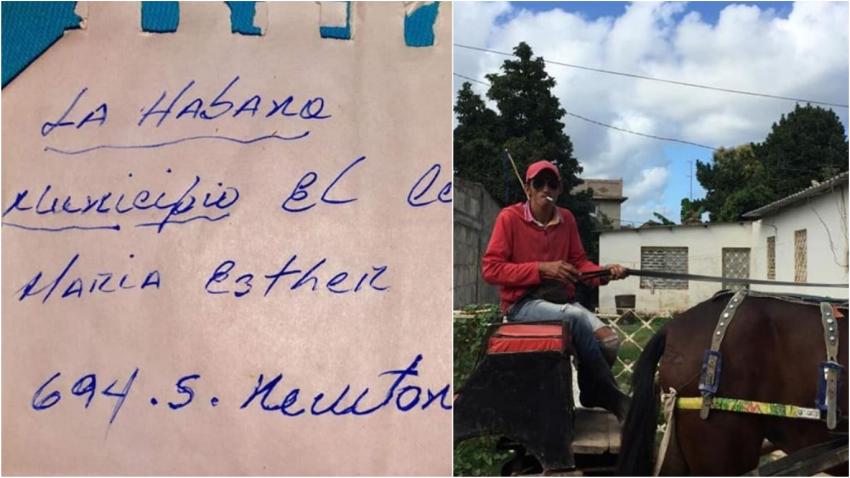 La Habana
Municipio El
Maria Esther
694. S. Newton